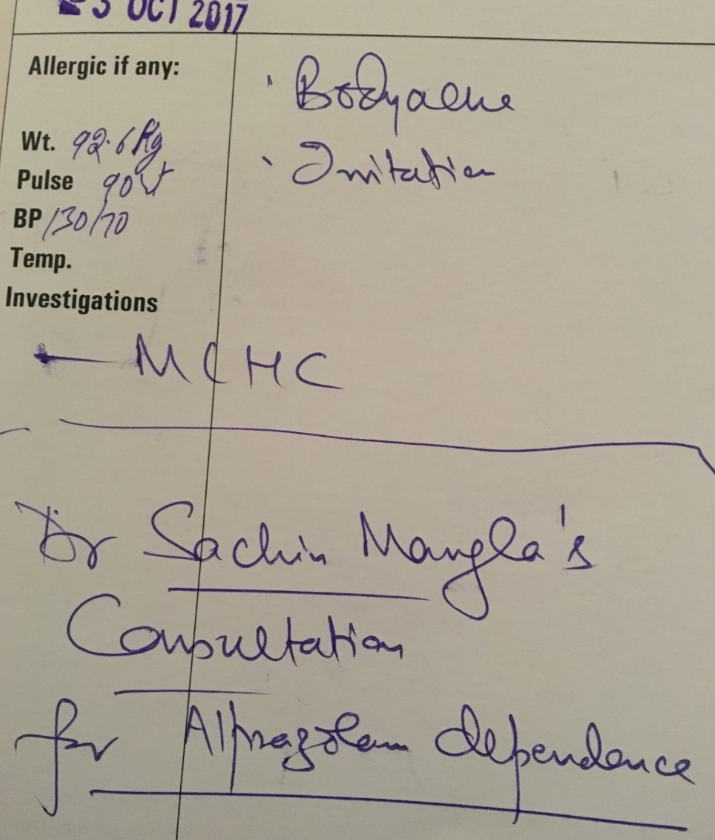 3 OCT 2017
Allergic if any:
· Bodyache
Wt. 92.6 Kg
· Irritation
Pulse 90
BP 130/70
Temp.
Investigations
MCHC
Dr Sachin Mangla's
Consultation
for Alprazolam dependence